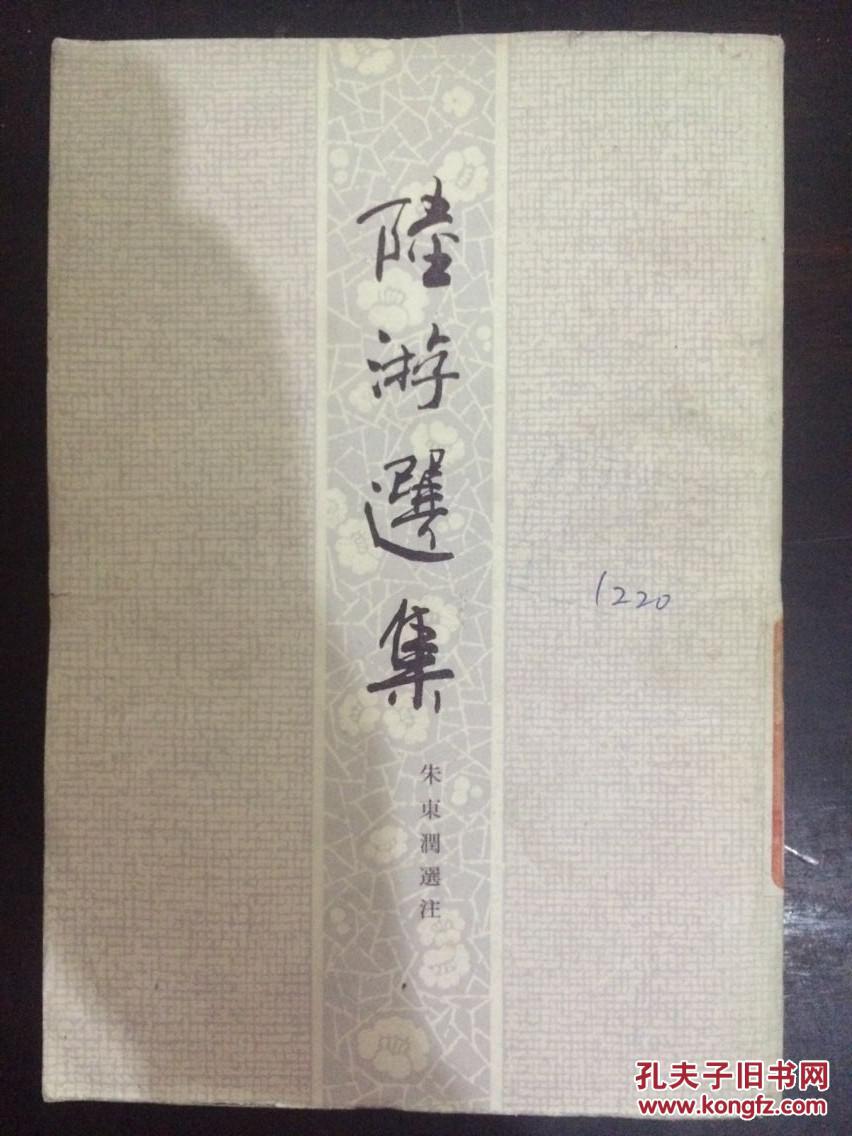 陸游選集
朱東潤選注
1220
孔夫子旧书网
www.kongfz.com